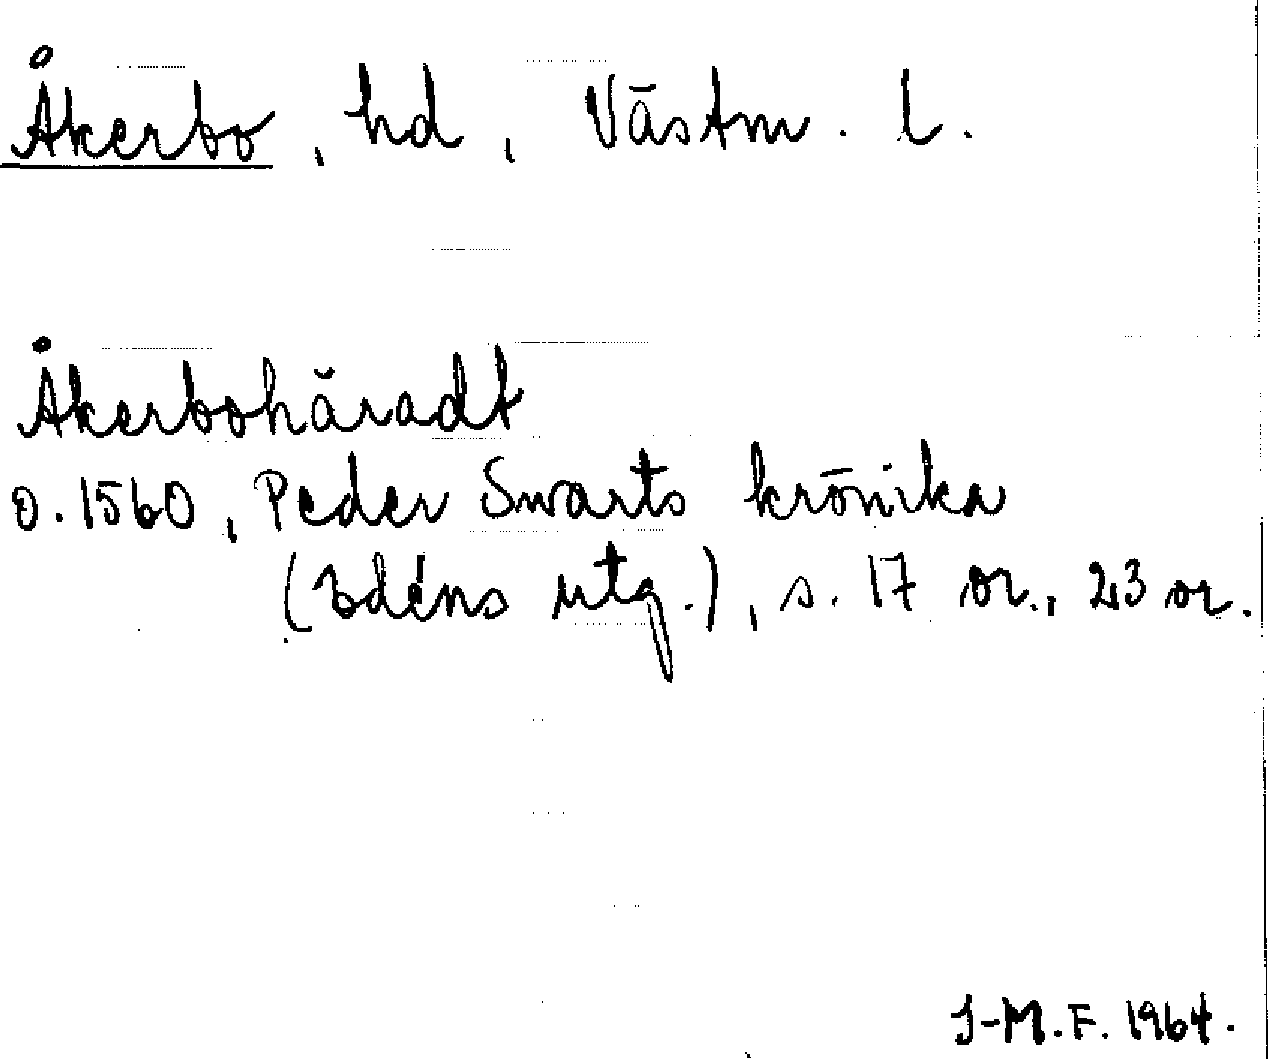 Åkerbo, hd, Västm. l.
Åkerbohäradt
o. 1560, Peder Swarts krönika
(Edéns utg.), s. 17 or., 23 or.
J-M.F. 1964.